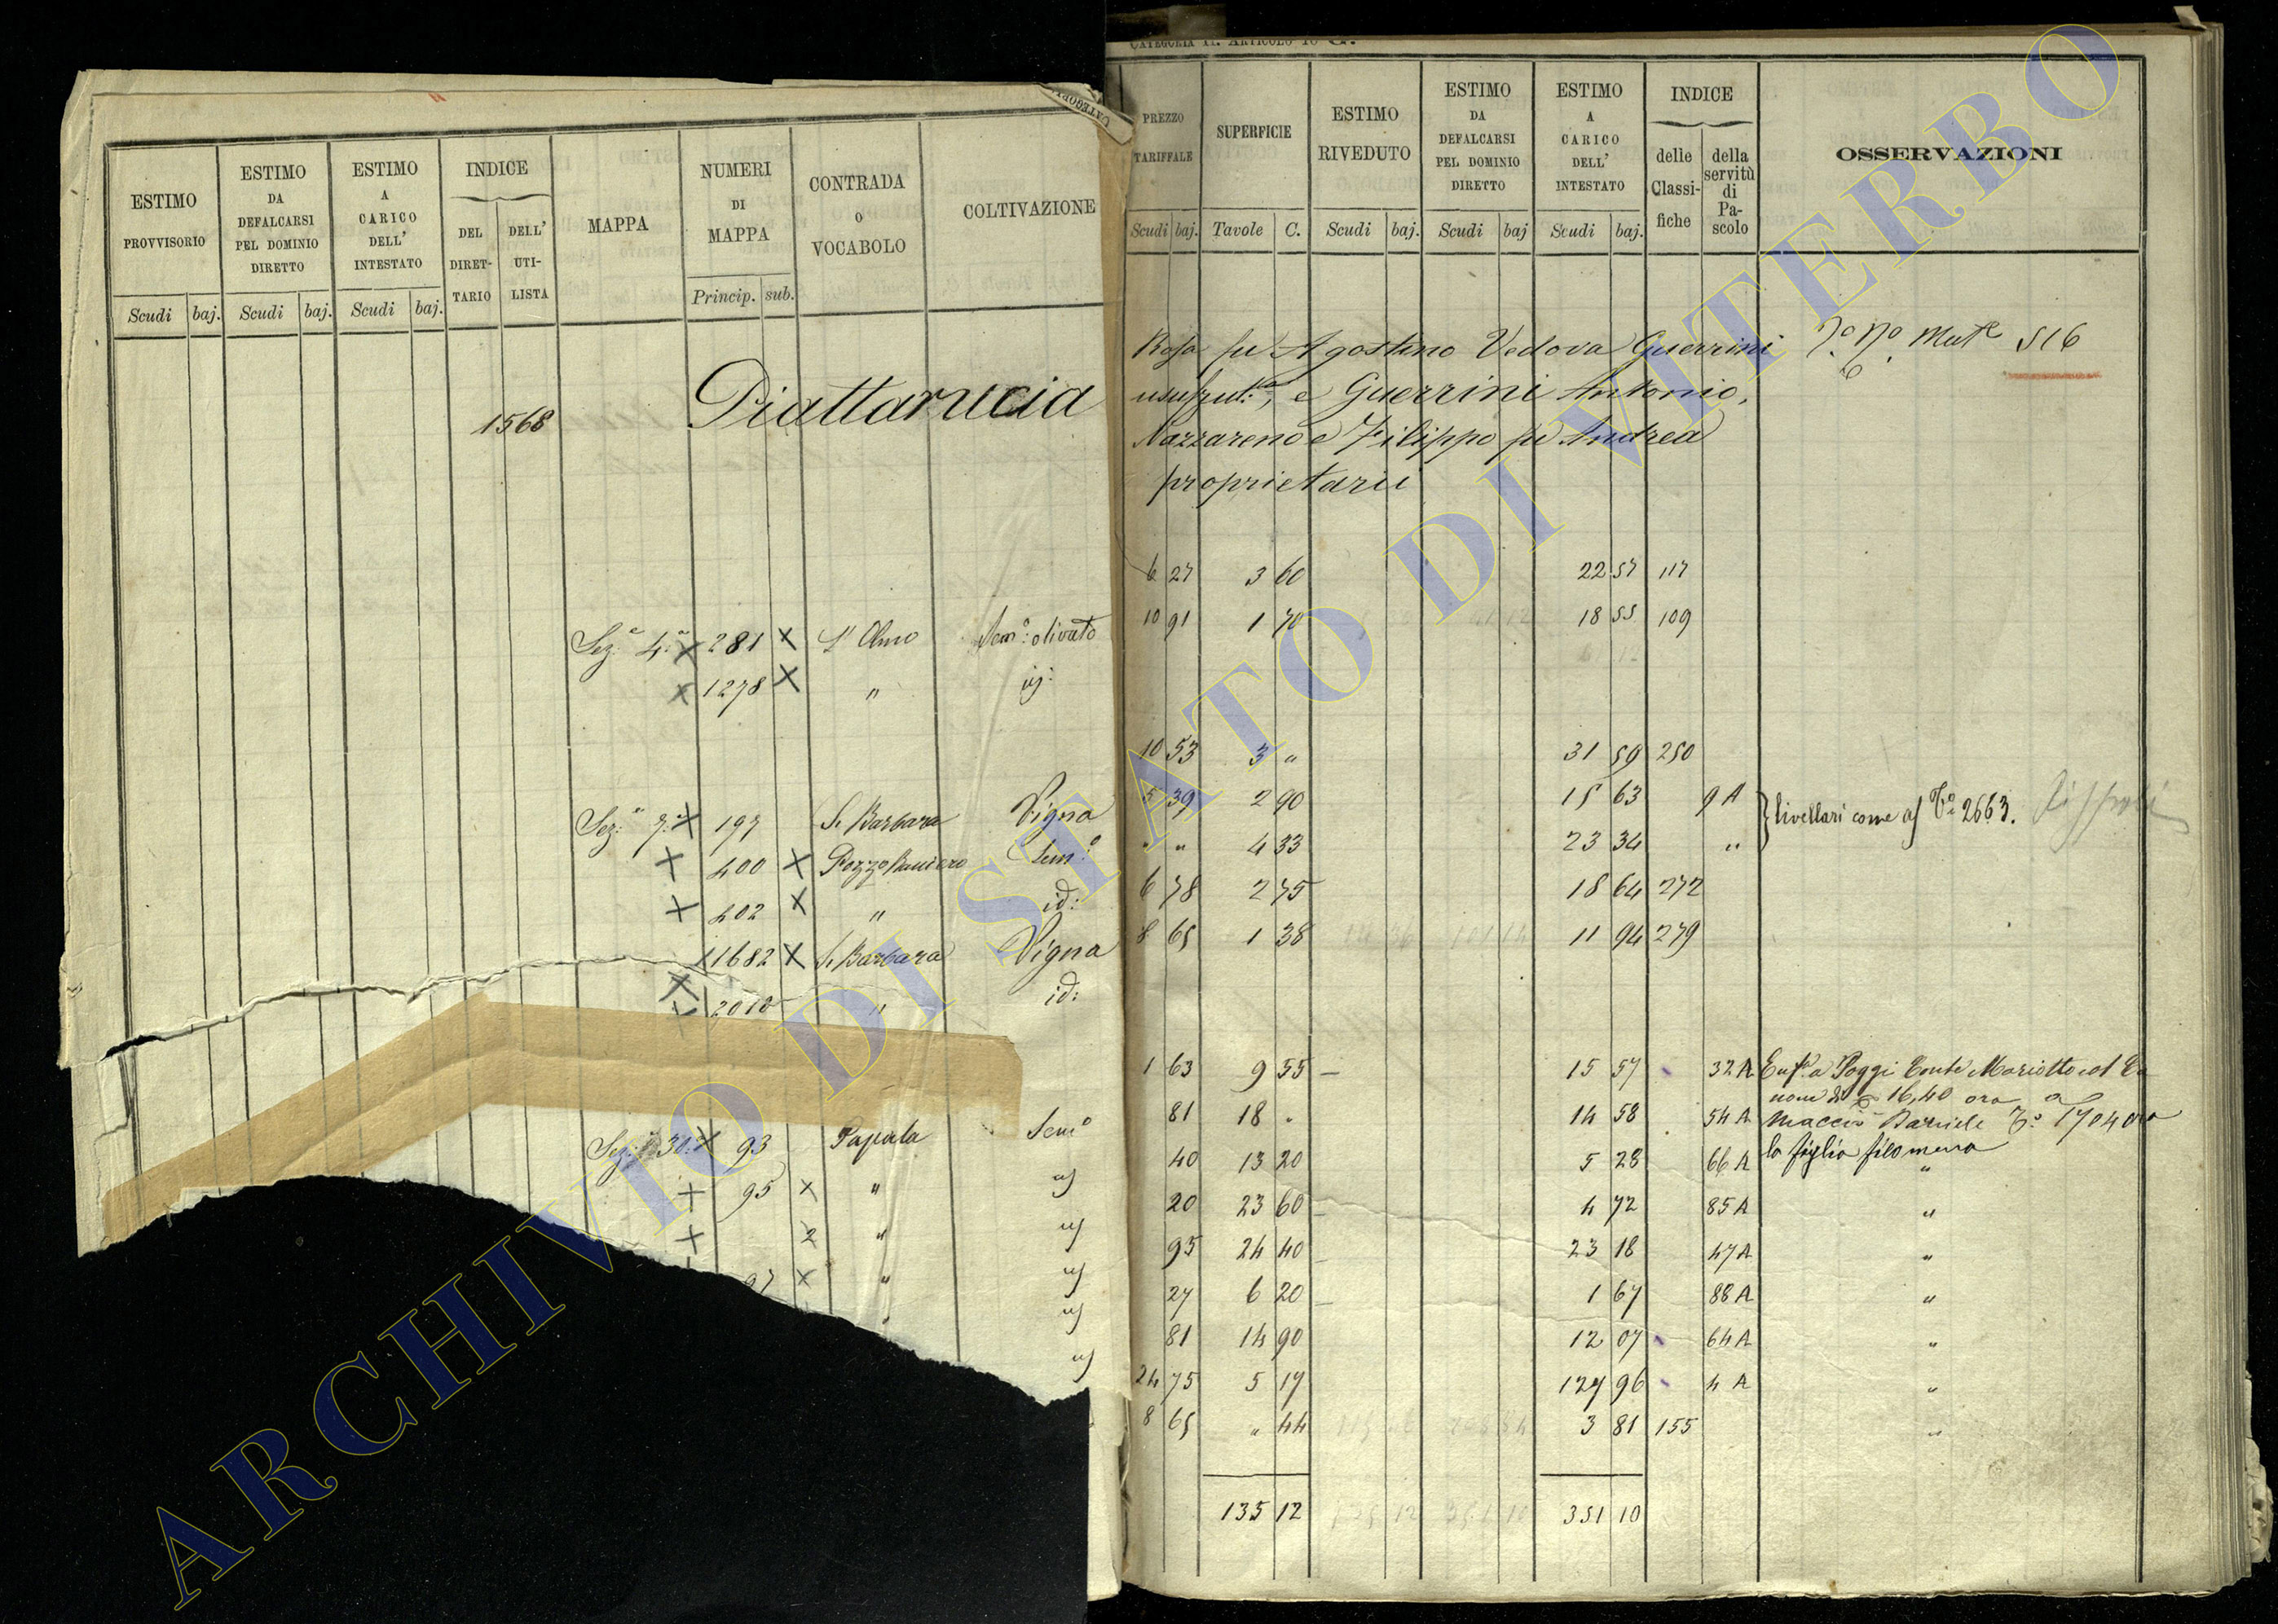 CATEGORIA II. ARTICOLO 10 G.
ESTIMO PROVVISORIO
Scudi baj.
ESTIMO DA DEFALCARSI PEL DOMINIO DIRETTO
Scudi baj.
ESTIMO A CARICO DELL' INTESTATO
Scudi baj.
INDICE
DEL DIRET-TARIO
DELL' UTI-LISTA
MAPPA
NUMERI DI MAPPA
Princip. sub.
CONTRADA O VOCABOLO
COLTIVAZIONE
PREZZO TARIFFALE
Scudi baj.
SUPERFICIE
Tavole C.
ESTIMO RIVEDUTO
Scudi baj.
ESTIMO DA DEFALCARSI PEL DOMINIO DIRETTO
Scudi baj
ESTIMO A CARICO DELL' INTESTATO
Scudi baj.
INDICE
delle Classi-fiche
della servitù di Pa-scolo
OSSERVAZIONI
1568 Piattarucia
Sez.e 4.a x 281 x L'Olmo Sem.o olivato
x 1278 x " id:
Sez.e 7.a x 197 S. Barbara Vigna
+ 400 x Pozzo Sem.o
+ 402 x " id:
1682 x S. Barbara Vigna
x 2010 " id:
Sez. 30. x 93 Papala Sem.o
+ 95 x " id
+ 2 " id
97 x " id
" id
id
Rosa fu Agostino Vedova Guerrini
usufrut.a, e Guerrini Antonio,
Nazzareno e Filippo fu Andrea
proprietarii
Mut.e 516
6 27 3 60 22 57 117
10 91 1 70 18 55 109
10 53 3 " 31 59 250
5 39 2 90 15 63 9 A
" " 4 33 23 34 "
livellari come a T.o 2663.
6 78 2 75 18 64 272
8 65 1 38 11 94 279
1 63 9 55 15 57 32 A Enf.a Poggi Conte Mariotto
16,40 ora
81 18 " 14 58 54 A Maccio T.o 1704 ora
40 13 20 5 28 66 A la figlia filomena "
20 23 60 4 72 85 A "
95 24 40 23 18 47 A "
27 6 20 1 67 88 A "
81 14 90 12 07 64 A "
24 75 5 17 127 96 4 A "
8 65 " 44 3 81 155 "
135 12 351 10
ARCHIVIO DI STATO DI VITERBO